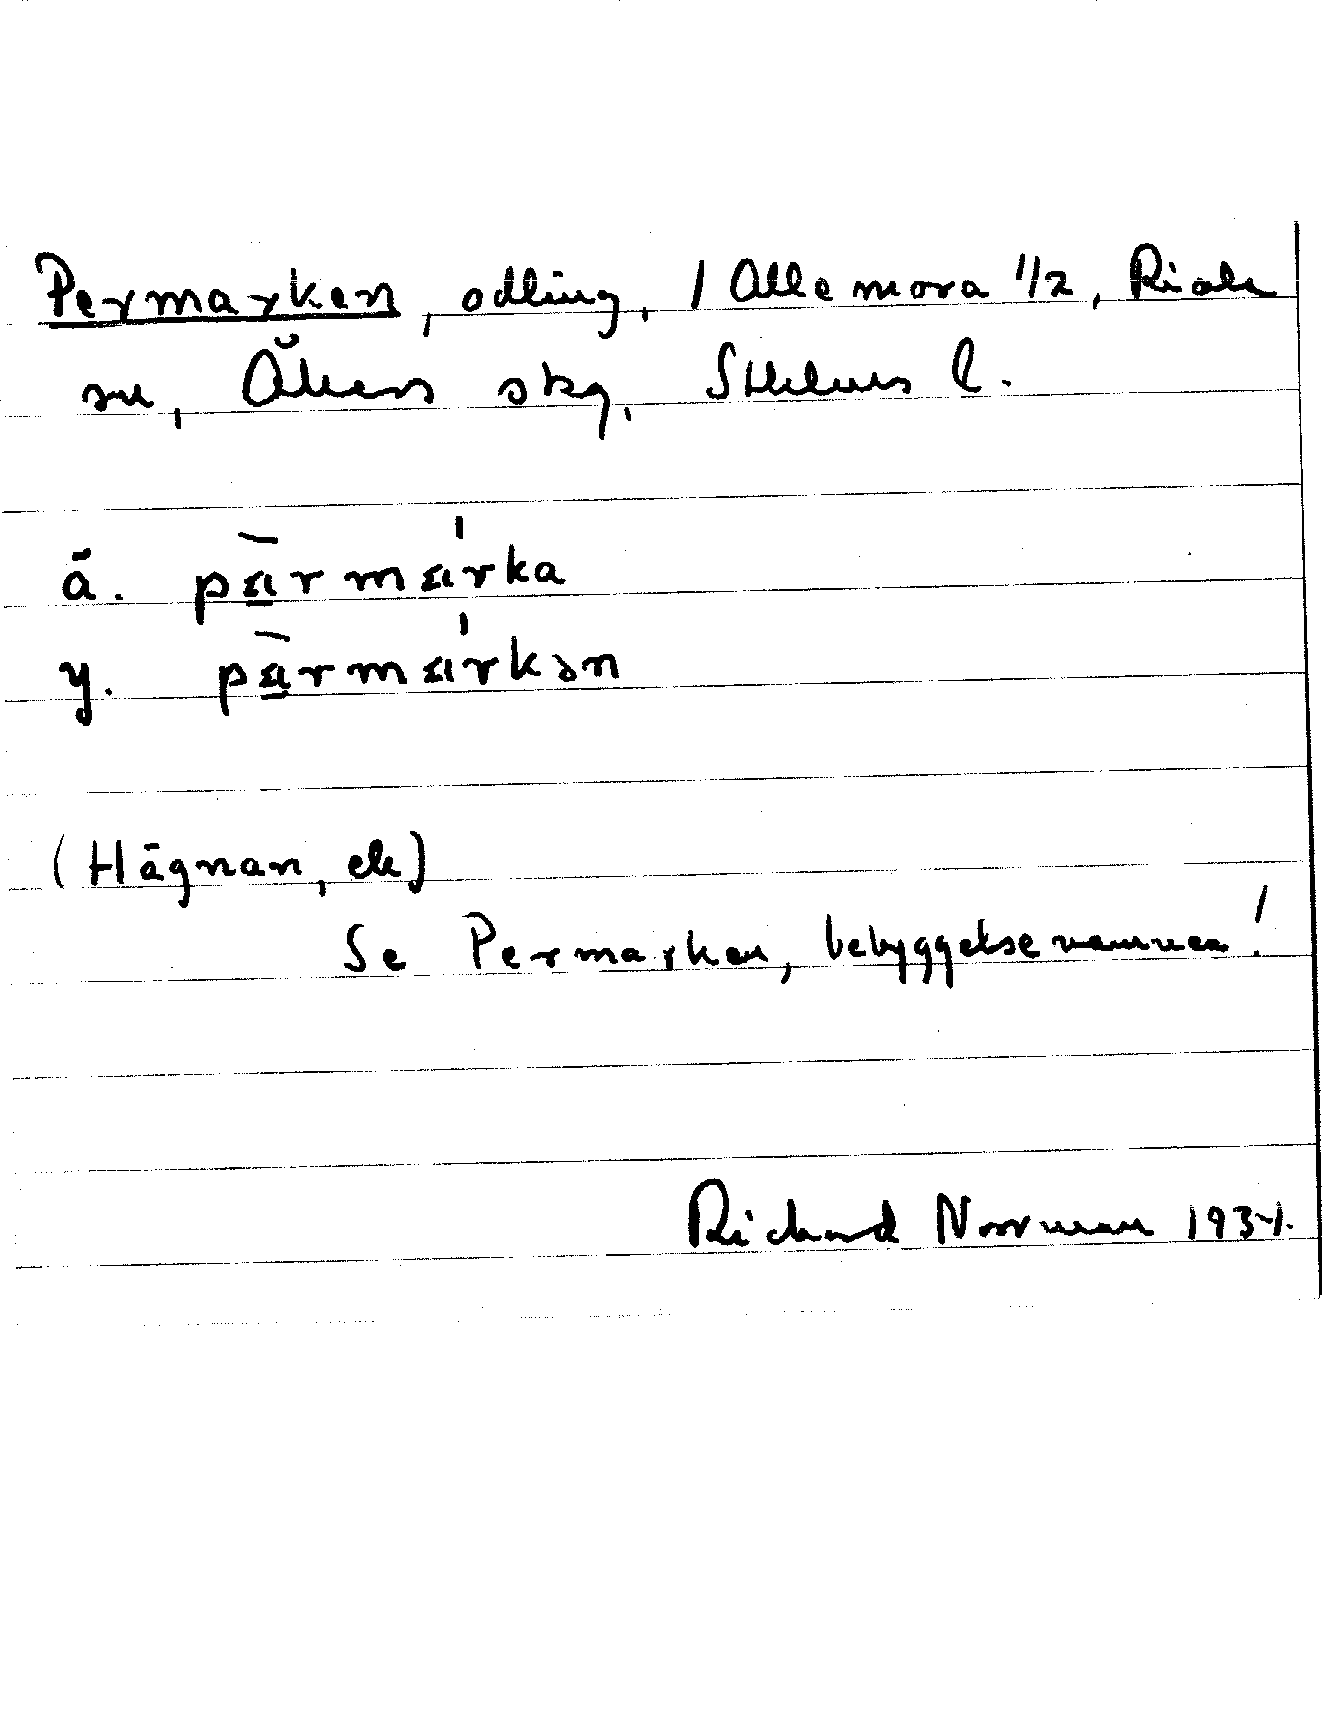 Permarken, odling, 1 Allemora 1/2, Riala
sn, Åkers skg, Sthlms l.
ä. pàrmárka
y. pàrmárkən
(Hägnan, ek)
Se Permarken, bebyggelsenamnen!
Richard Norrman 1934.